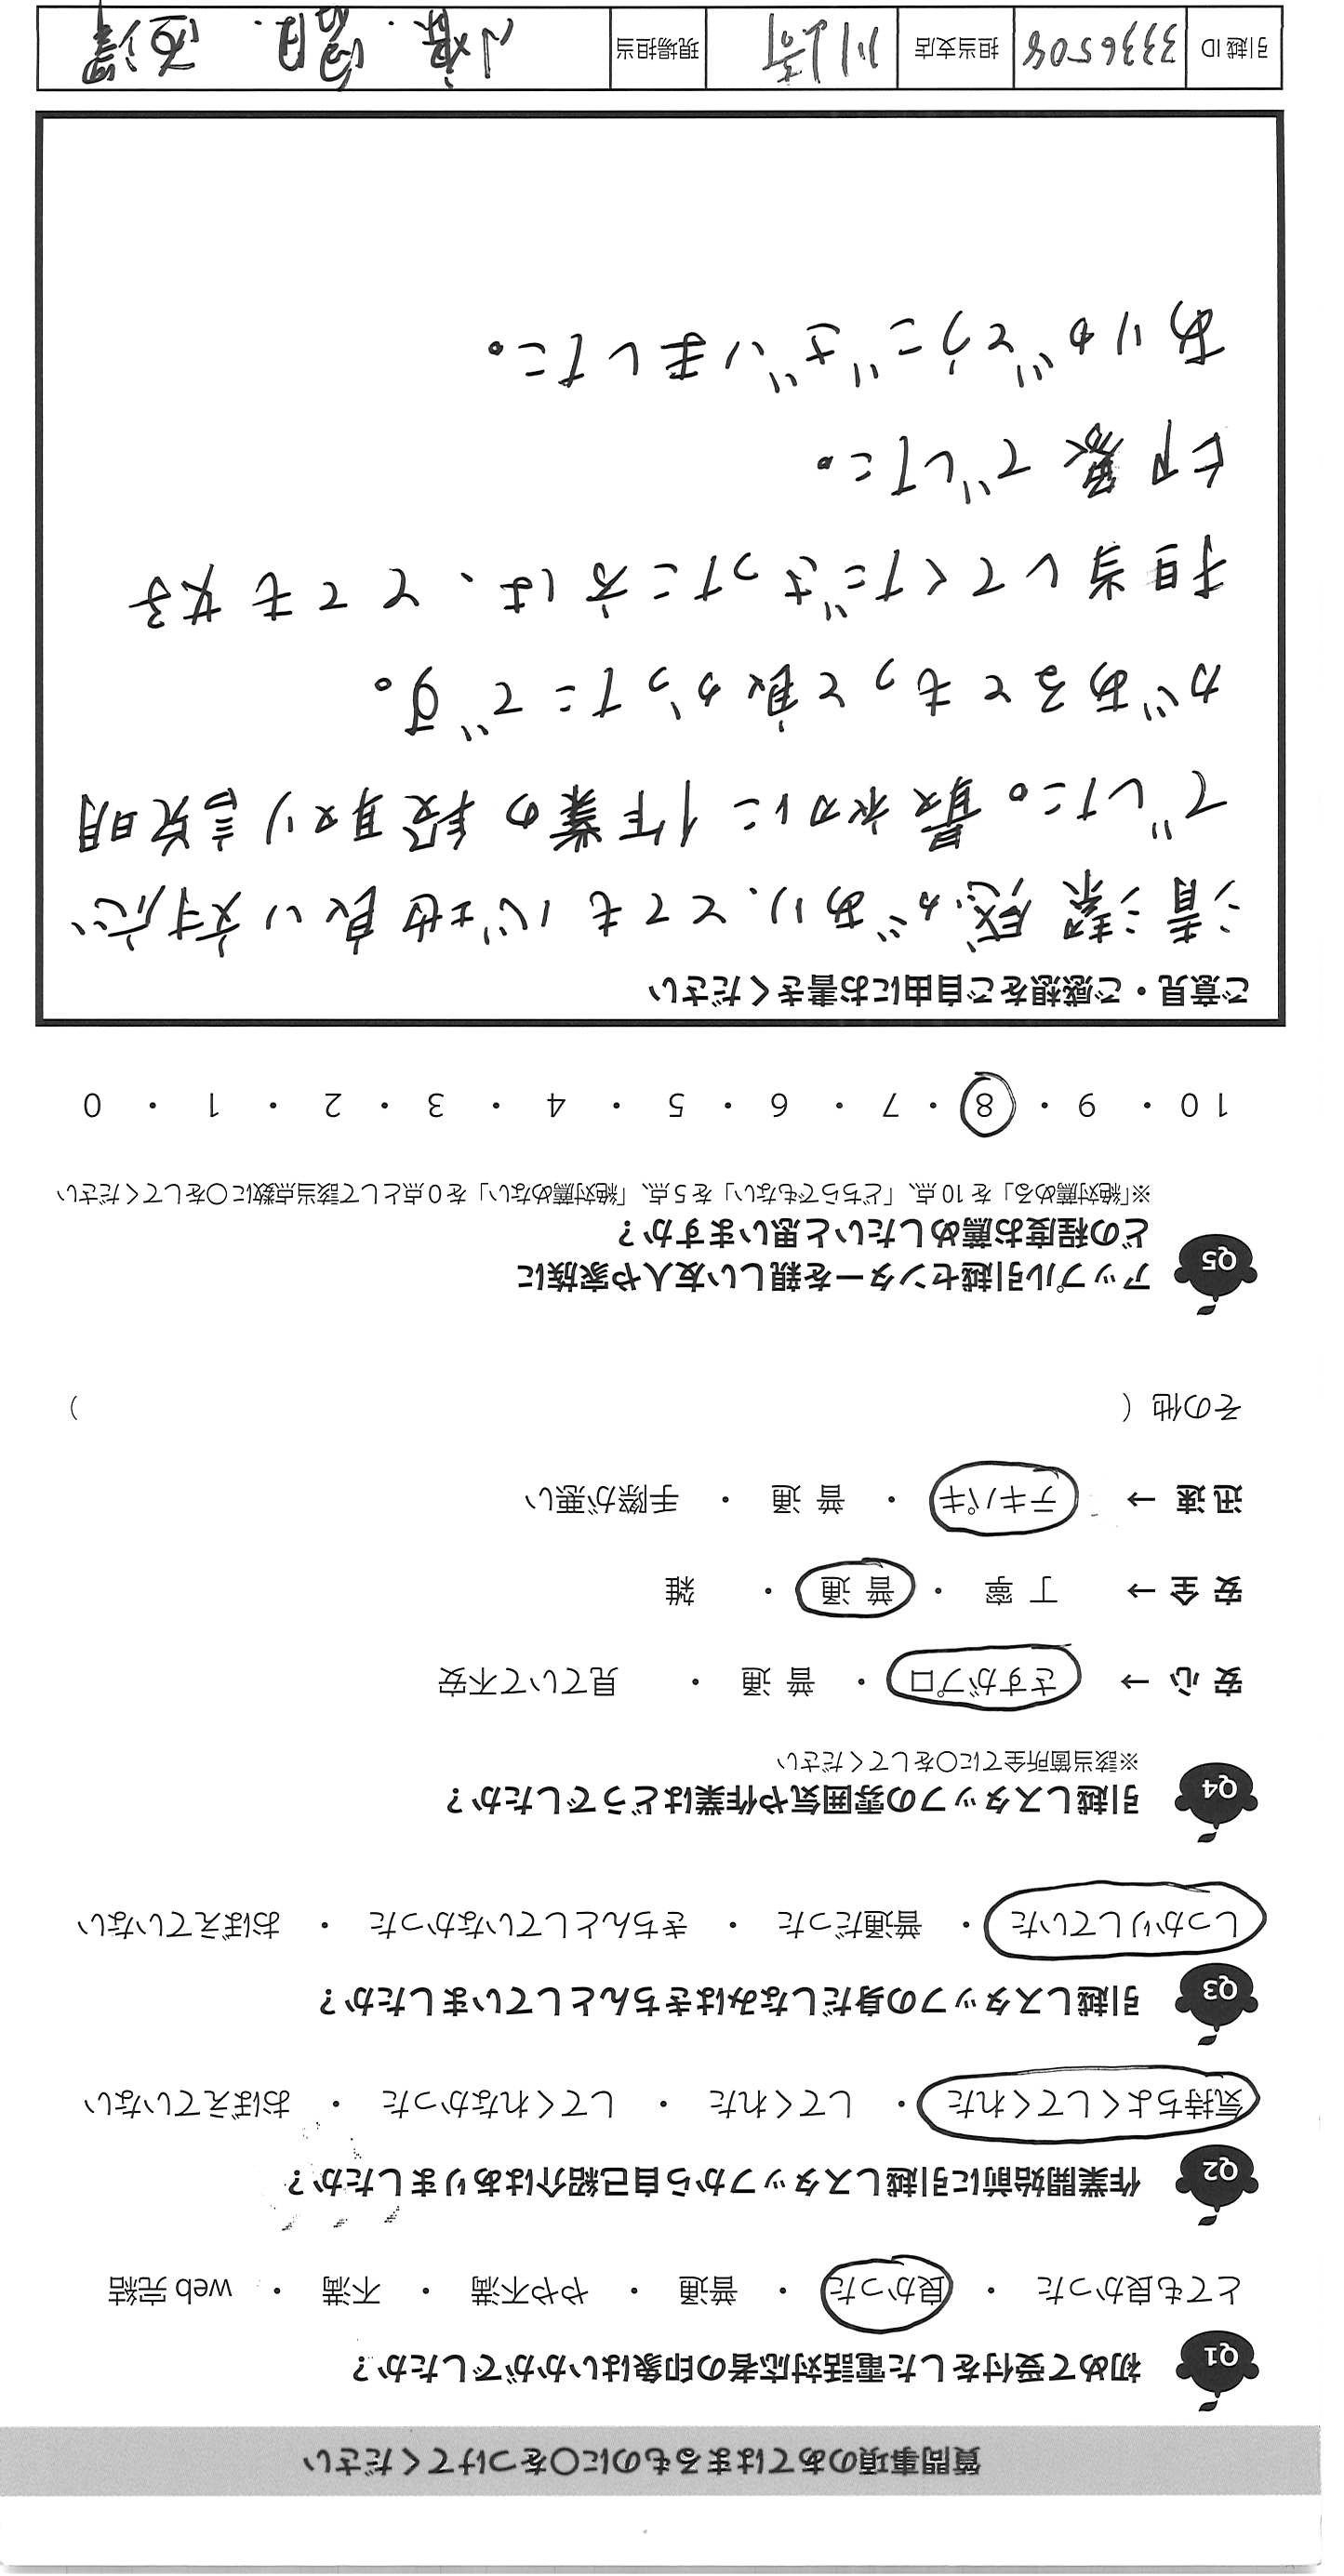 質問事項のあてはまるものに〇をつけてください
Q1 初めて受付をした電話対応者の印象はいかがでしたか？
とても良かった ・ 良かった ・ 普通 ・ やや不満 ・ 不満 ・ web 完結
Q2 作業開始前に引越しスタッフから自己紹介はありましたか？
気持ちよくしてくれた ・ してくれた ・ してくれなかった ・ おぼえていない
Q3 引越しスタッフの身だしなみはきちんとしていましたか？
しっかりしていた ・ 普通だった ・ きちんとしていなかった ・ おぼえていない
Q4 引越しスタッフの雰囲気や作業はどうでしたか？
※該当箇所全てに〇をしてください
安 心 → さすがプロ ・ 普 通 ・ 見ていて不安
安 全 → 丁 寧 ・ 普 通 ・ 雑
迅 速 → テキパキ ・ 普 通 ・ 手際が悪い
その他（ ）
Q5 アップル引越センターを親しい友人や家族に
どの程度お薦めしたいと思いますか？
※「絶対薦める」を 10 点、「どちらでもない」を 5 点、「絶対薦めない」を 0 点として該当点数に〇をしてください
10 ・ 9 ・ 8 ・ 7 ・ 6 ・ 5 ・ 4 ・ 3 ・ 2 ・ 1 ・ 0
ご意見・ご感想をご自由にお書きください
清潔感があり、とても心地良い対応
でした。最初に作業の段取り説明
があるともっと良かったです。
担当してくださった方は、とても好
印象でした。
ありがとうございました。
引越 ID 3336508 担当支店 川崎 現場担当